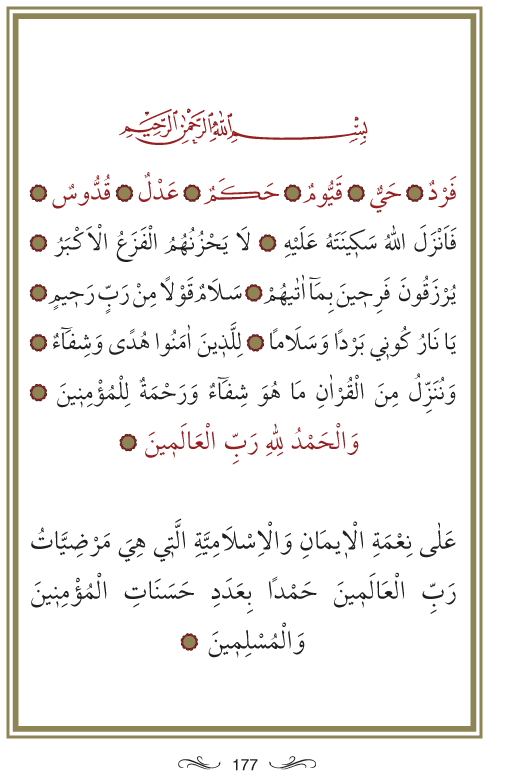 بِسْمِ اللّٰهِ الرَّحْمٰنِ الرَّحِيمِ
فَرْدٌ حَيٌّ قَيُّومٌ حَكَمٌ عَدْلٌ قُدُّوسٌ
فَاَنْزَلَ اللّٰهُ سَكٖينَتَهُ عَلَيْهِ لَا يَحْزُنُهُمُ الْفَزَعُ الْاَكْبَرُ
يُرْزَقُونَ فَرِحٖينَ بِمَٓا اٰتٰيهُمْ سَلَامٌ قَوْلًا مِنْ رَبٍّ رَحٖيمٍ
يَا نَارُ كُونٖي بَرْدًا وَسَلَامًا لِلَّذٖينَ اٰمَنُوا هُدًى وَشِفَٓاءٌ
وَنُنَزِّلُ مِنَ الْقُرْاٰنِ مَا هُوَ شِفَٓاءٌ وَرَحْمَةٌ لِلْمُؤْمِنٖينَ
وَالْحَمْدُ لِلّٰهِ رَبِّ الْعَالَمٖينَ
عَلٰى نِعْمَةِ الْاٖيمَانِ وَالْاِسْلَامِيَّةِ الَّتٖي هِيَ مَرْضِيَّاتُ
رَبِّ الْعَالَمٖينَ حَمْدًا بِعَدَدِ حَسَنَاتِ الْمُؤْمِنٖينَ
وَالْمُسْلِمٖينَ
177